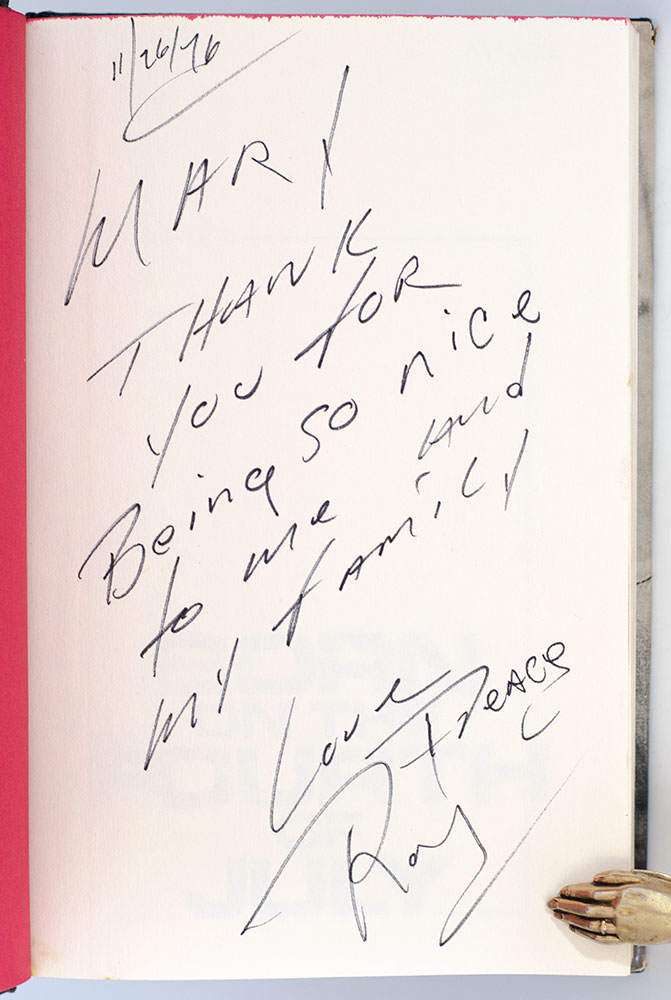 11/26/76
MARY
THANK
YOU FOR
Being SO nice
to me and
MY FAMILY
Love + Peace
Ron